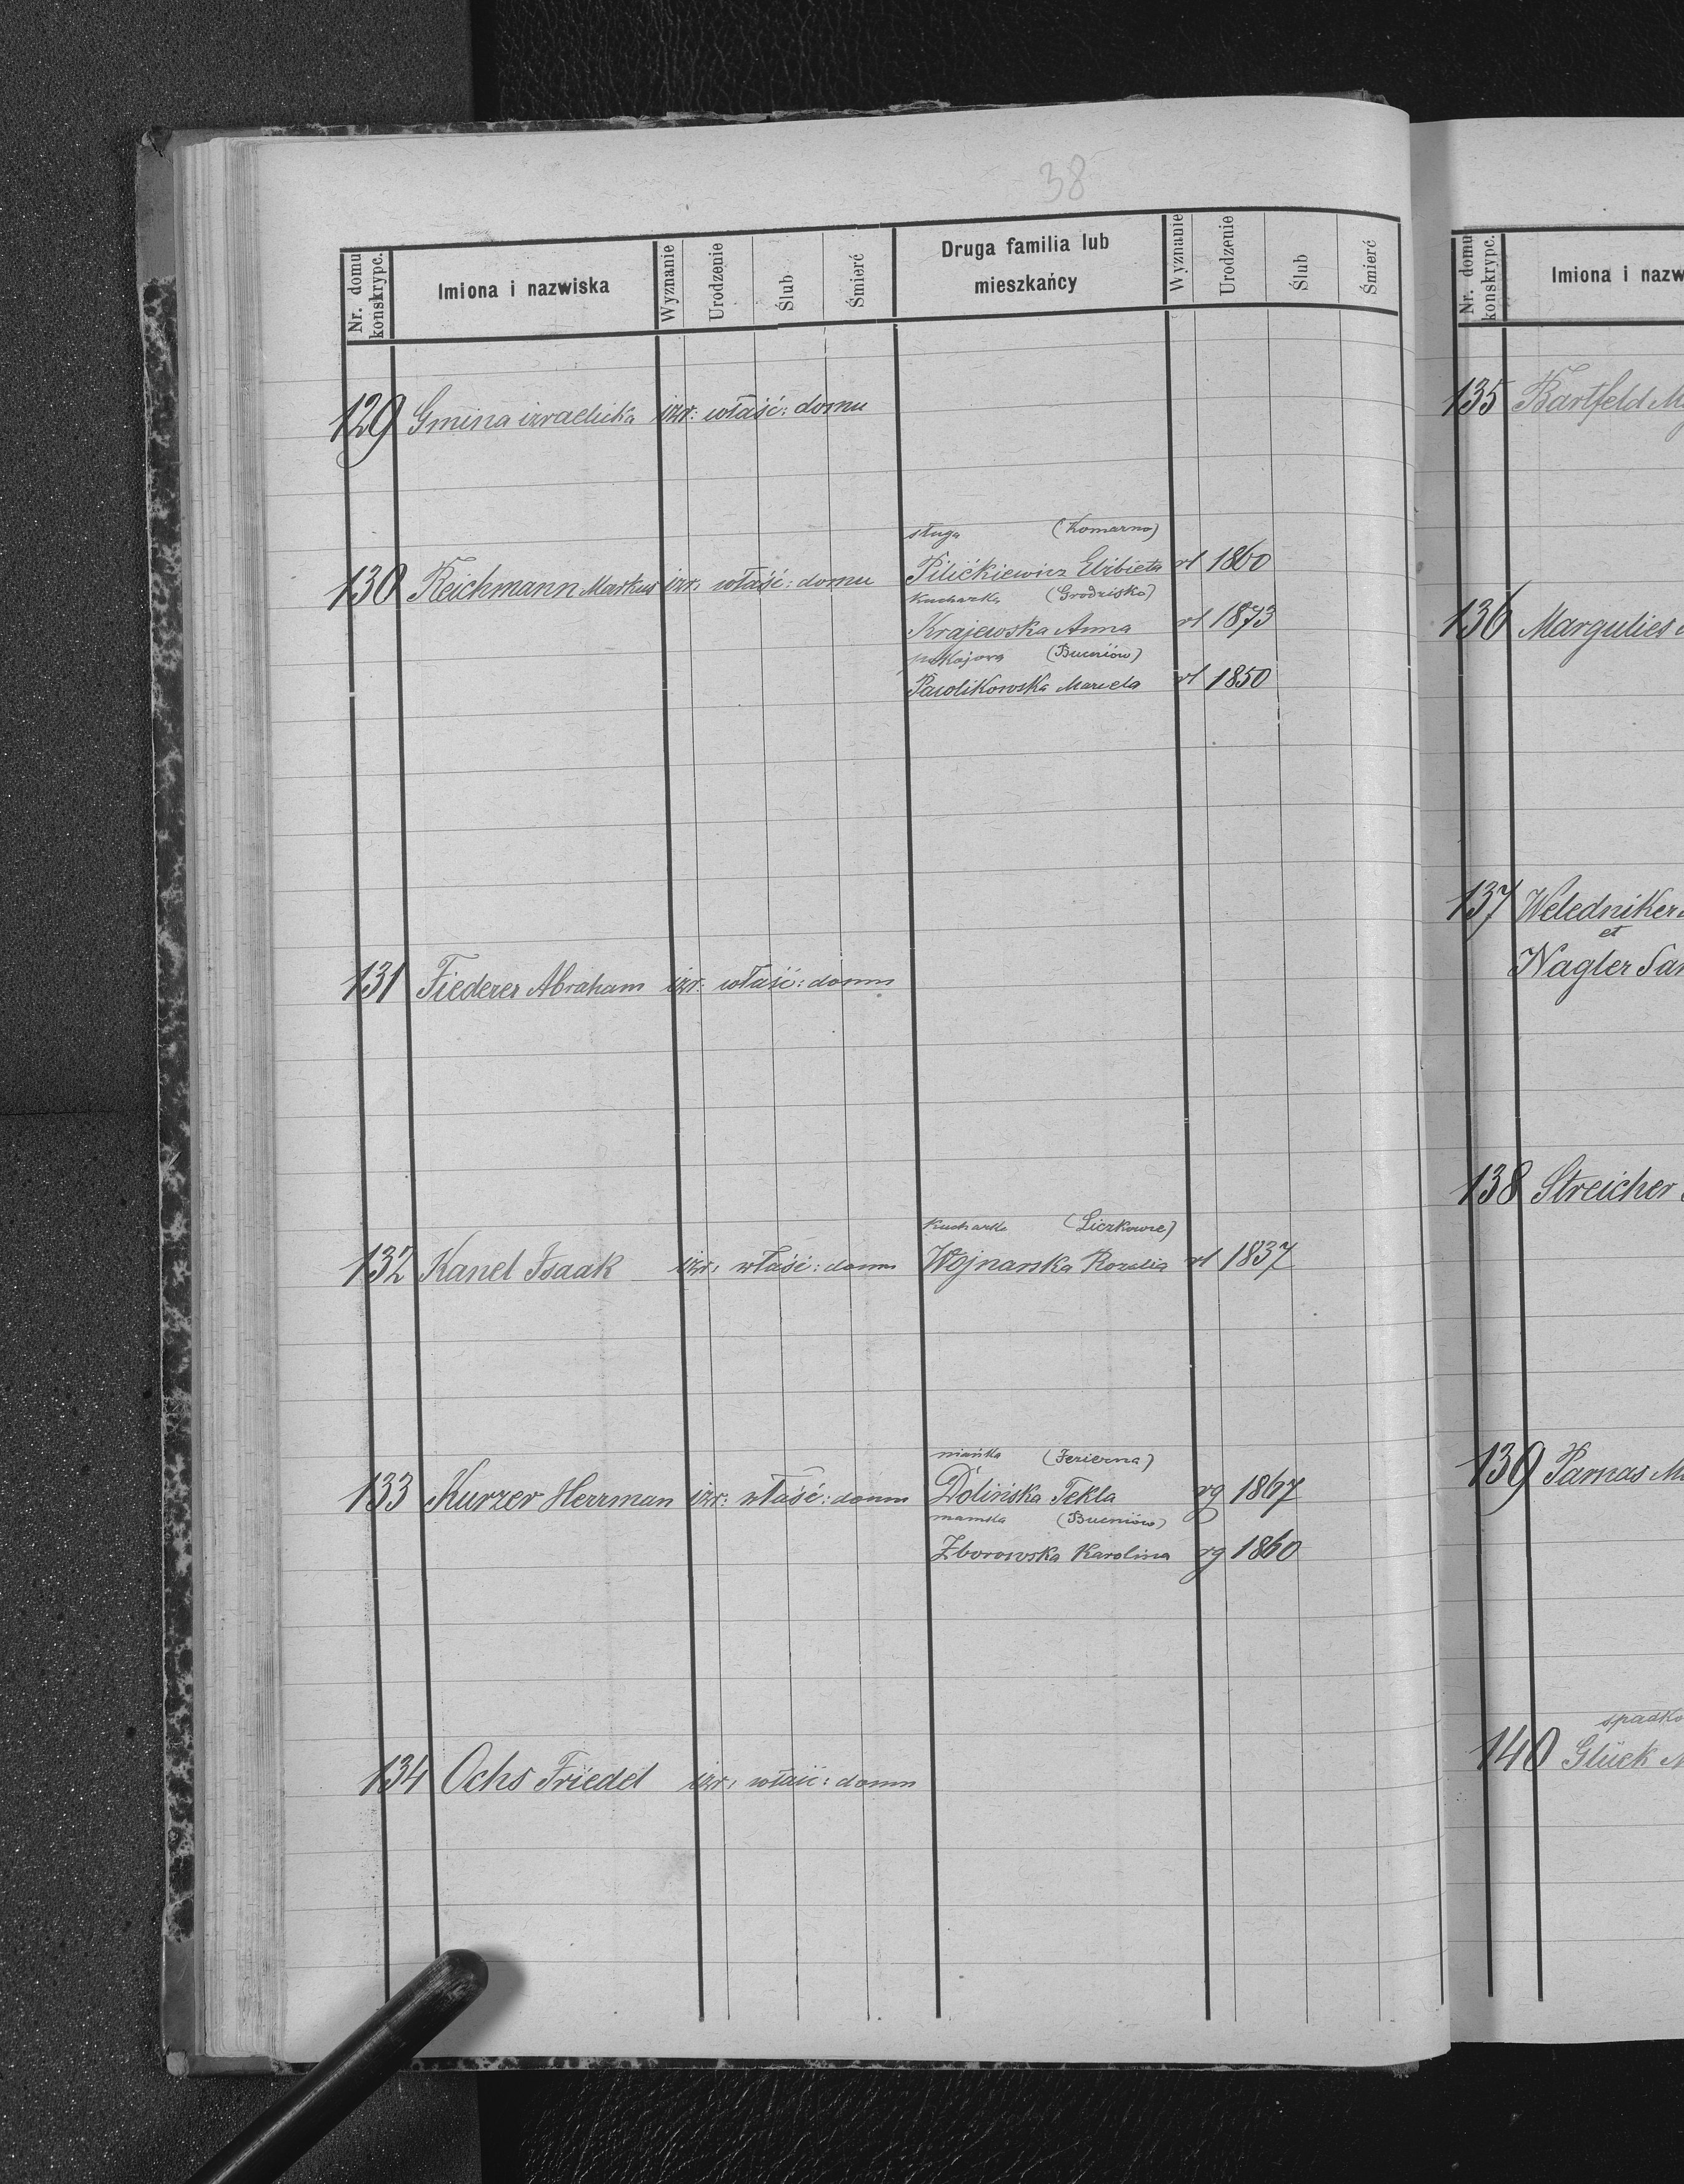 38
Nr. domu konskrypc. Imiona i nazwiska Wyznanie Urodzenie Ślub Śmierć Druga familia lub mieszkańcy Wyznanie Urodzenie Ślub Śmierć
129 Gmina izraelicka izr: właść: domu
sługa (Komarno)
130 Reichmann Markus izr: właść: domu Pilićkiewicz Elżbieta rł 1860
kucharka (Grodzisko)
Krajewska Anna rł 1873
pokojowa (Bucniów)
Pawlikowska Marcela rł 1850
131 Fiederer Abraham izr: właść: domu
kucharka (Liczkowce)
132 Kanel Isaak izr: właść: domu Wojnarska Rozalia rł 1837
niańka (Jezierna)
133 Kurzer Herrman izr: właść: domu Dolińska Tekla rg 1867
mamka (Bucniów)
Zborowska Karolina rg 1860
134 Ochs Friedel izr: właść: domu
Nr. domu konskrypc. Imiona i nazw
135 Bartfeld
136 Margulies
137 Weledniker
et
Nagler
138 Streicher
139 Parnas
spadko
140 Glück